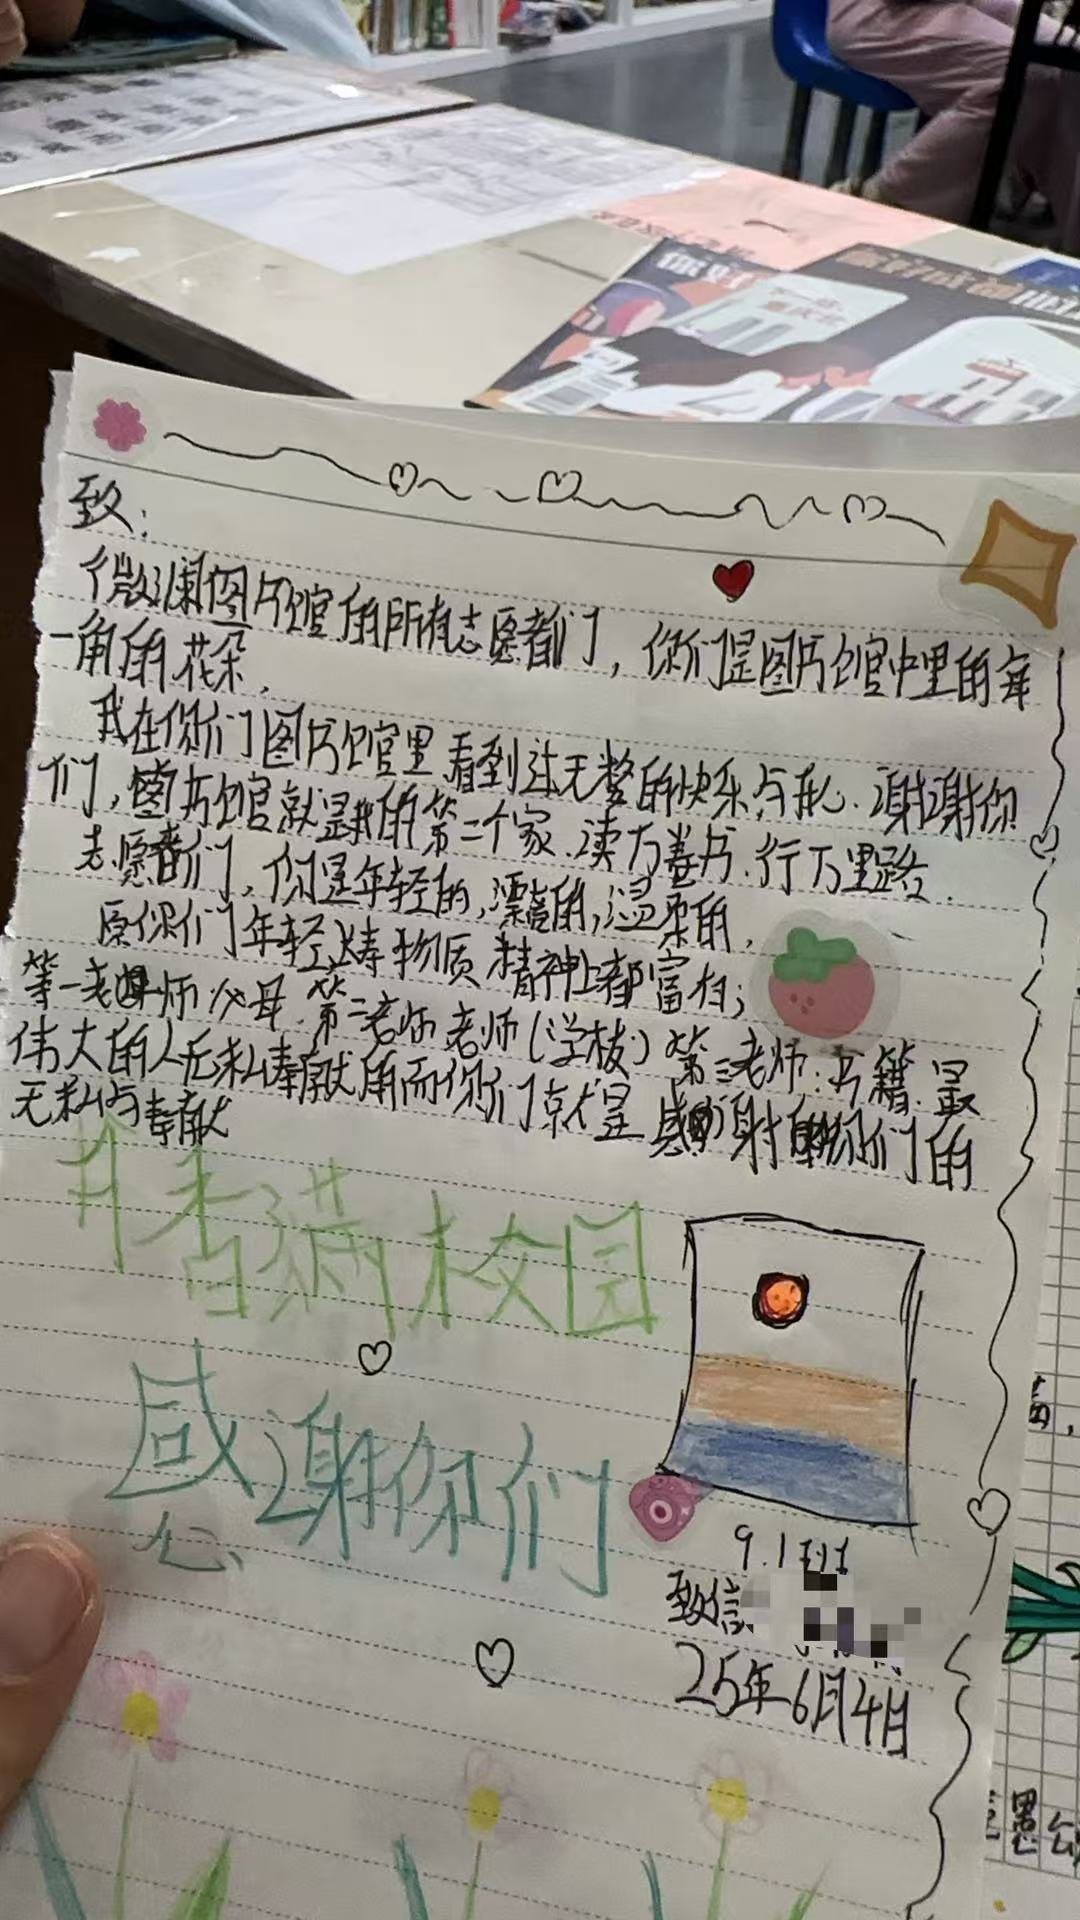 你好
你好成都
致：
微澜图书馆的所有志愿者们，你们是图书馆中里的每
一角的花朵.
我在你们图书馆里看到过无数的快乐与开心.谢谢你
们，图书馆就是我的第二个家.读万卷书.行万里路.
志愿者们，你是年轻的，漂亮的，温柔的.
愿你们年轻 物质精神上都富有；
第一老师父母.第二老师老师(学校)第三老师：书籍.最
伟大的人无私奉献的而你们就是 感谢你们的
无私与奉献
书香满校园
感谢你们
心
9.1班
致信
25年6月4日